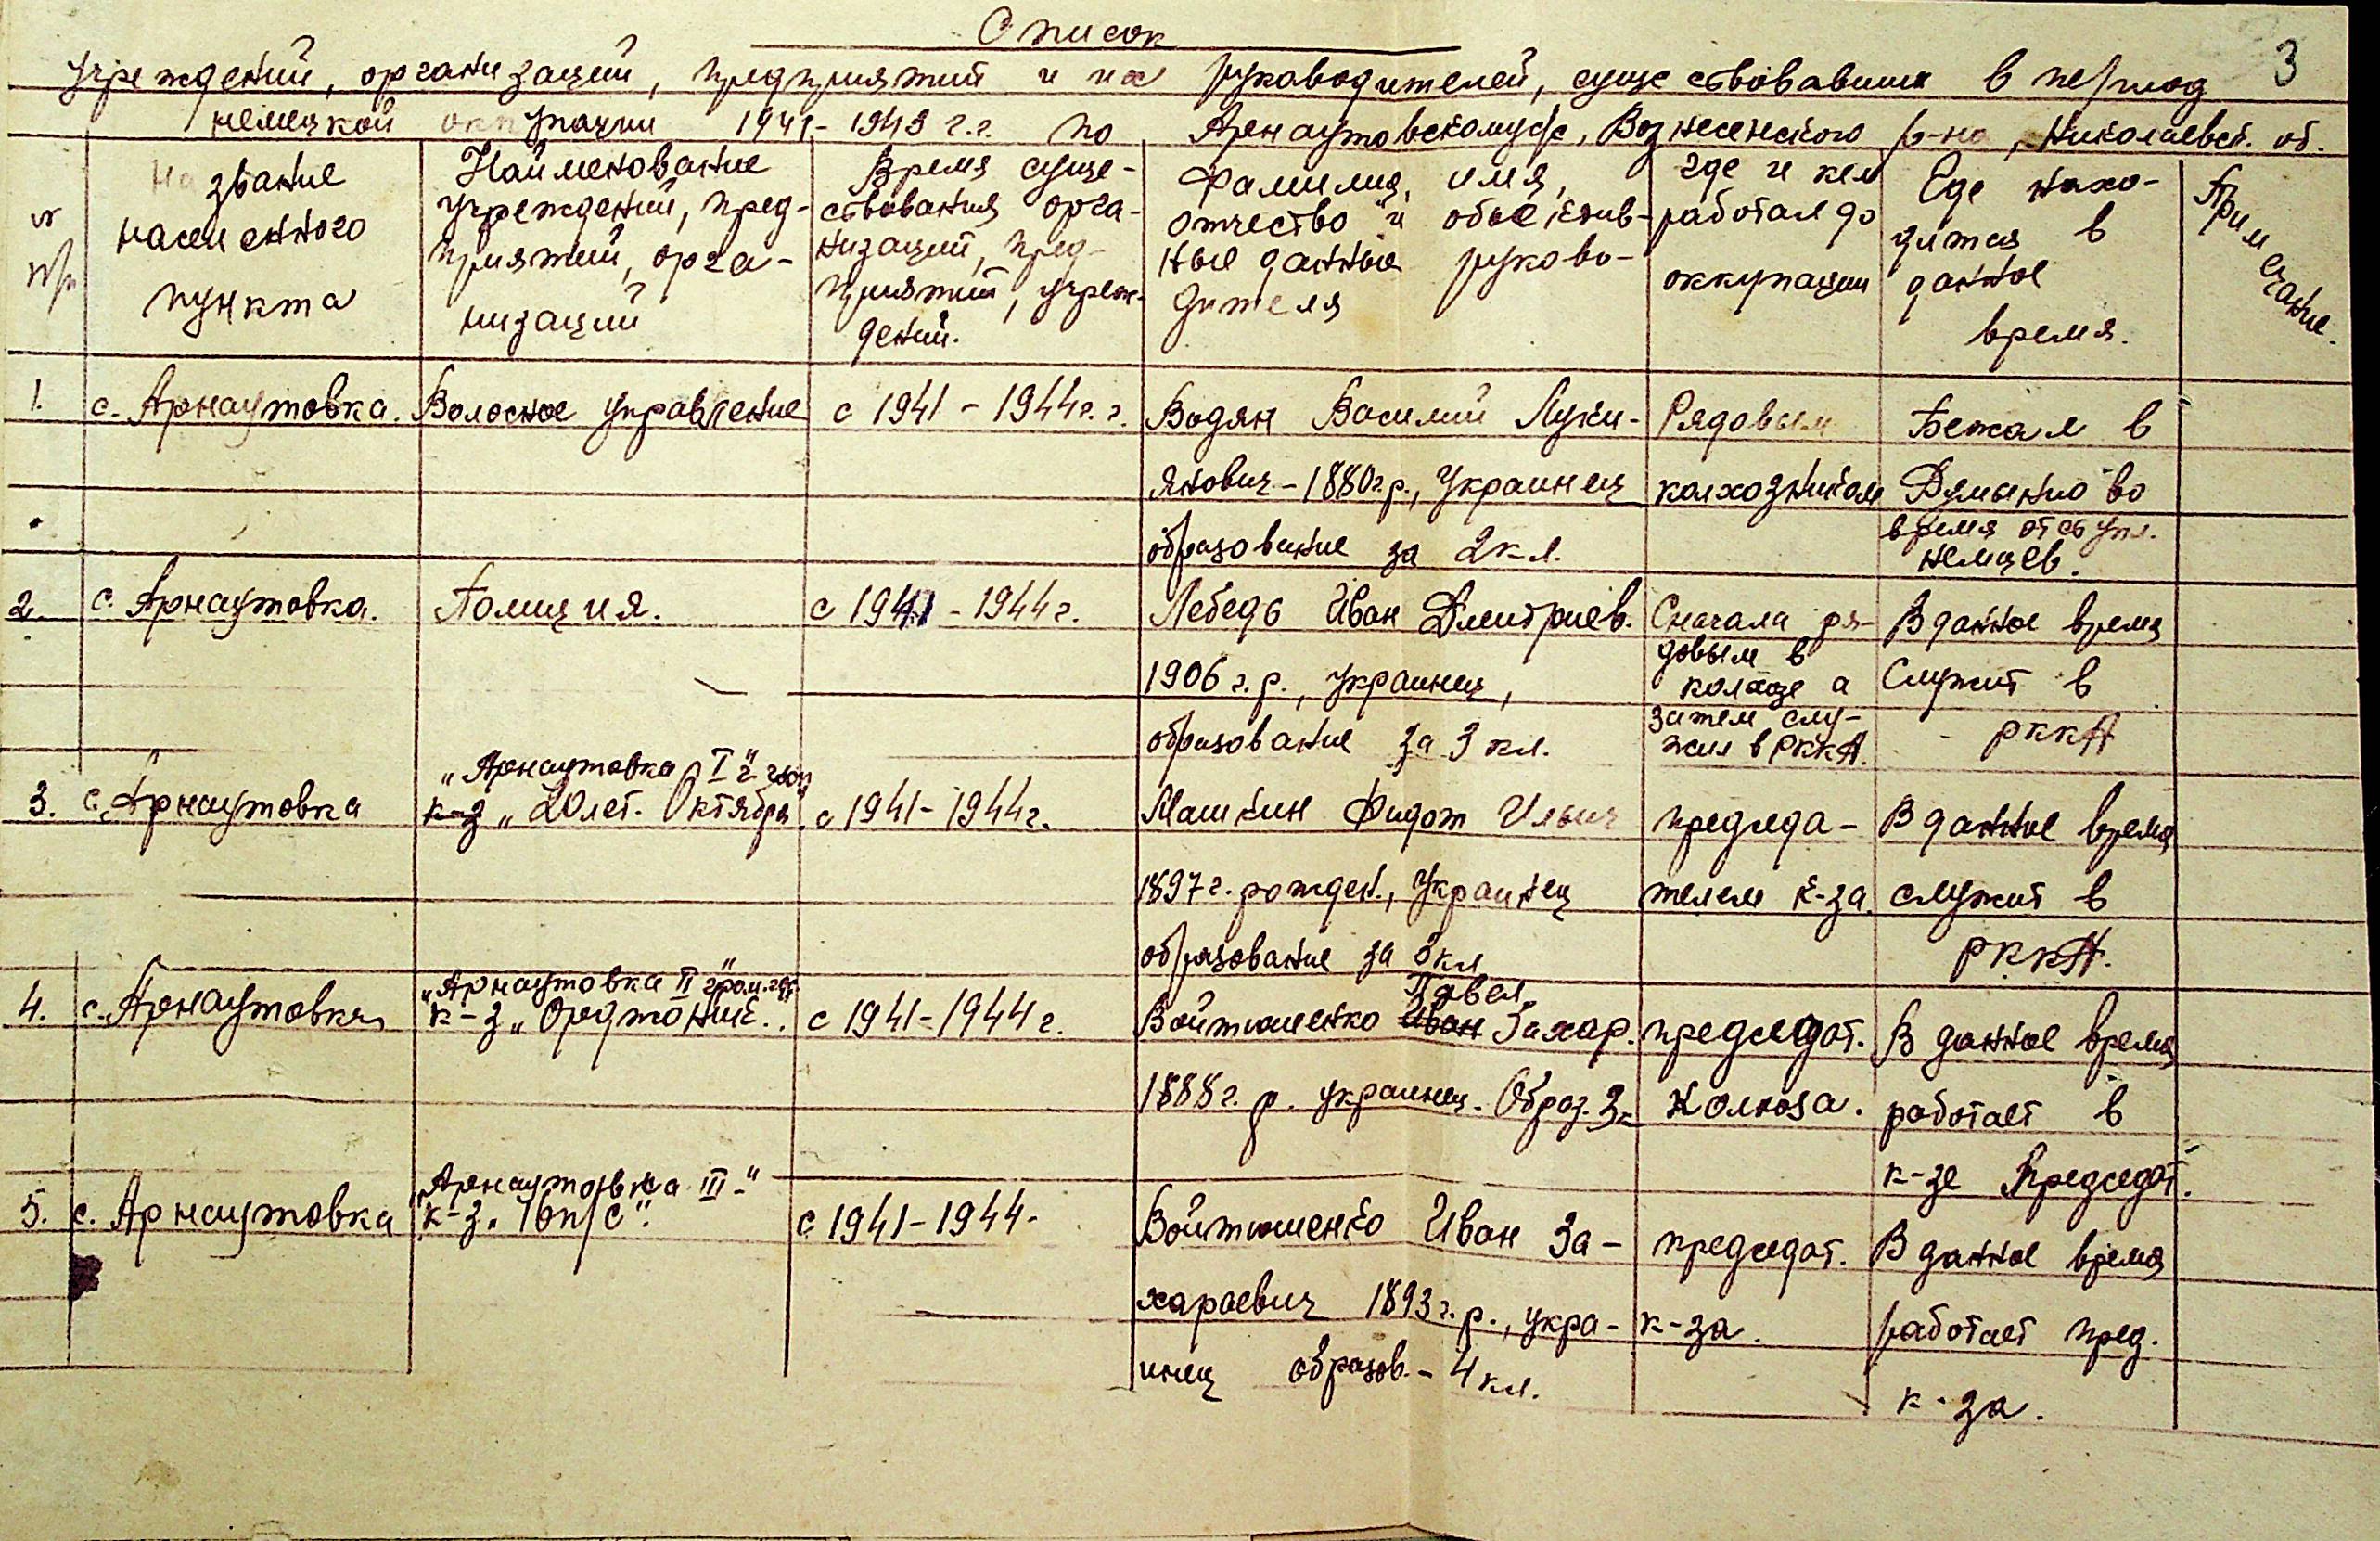 Список
3
учреждений, организаций, предприятий и их руководителей, существовавших в период
немецкой оккупации 1941-1943 г.г. по Арнаутовскому с/с, Вознесенского р-на, Николаевск. об.
№ п/п
Название
населенного
пункта
Наименование
учреждений, пред-
приятий, орга-
низаций
Время суще-
ствования орга-
низаций, пред-
приятий, учреж-
дений.
Фамилия, имя,
отчество и объектив-
ные данные руково-
дителя
где и кем
работал до
оккупации
Где нахо-
дится в
данное
время.
Примечание.
1.
с. Арнаутовка.
Волосное управление
с 1941 - 1944 г. г.
Водян Василий Луки-
янович - 1880 г.р., Украинец
образование за 2 кл.
Рядовым
колхозником
Бежал в
Румынию во
время отступл.
немцев.
2.
с. Арнаутовка.
Полиция.
с 1941 - 1944 г.
Лебедь Иван Дмитриев.
1906 г.р., украинец,
образование за 3 кл.
Сначала ря-
довым в
колхозе а
затем слу-
жил в РККА.
В данное время
Служит в
РККА
3.
с. Арнаутовка
„Арнаутовка I"
к-з „20 лет. Октября"
с 1941 - 1944 г.
Машкин Фидот Ильич
1897 г. рожден., Украинец
образование за 3 кл
председа-
телем к-за.
В данное время
служит в
РККА.
4.
с. Арнаутовка
„Арнаутовка II"
к-з „Орджоник..
с 1941 - 1944 г.
Павел
Войтюшенко Иван Захар.
1888 г. р. украинец. Образ. 3к
председат.
Колхоза.
В данное время
работает в
к-зе Председат.
5.
с. Арнаутовка
„Арнаутовка III-"
к-з „16 п/с".
с 1941 - 1944 -
Войтюшенко Иван За-
хараевич 1893 г.р., укра-
инец образов. - 4 кл.
председат.
к-за.
В данное время
работает пред.
к-за.